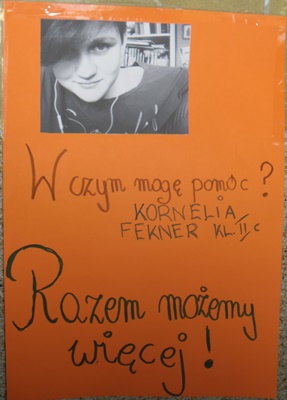 W czym mogę pomóc?
KORNELIA
FEKNER KL. II c
Razem możemy
więcej!